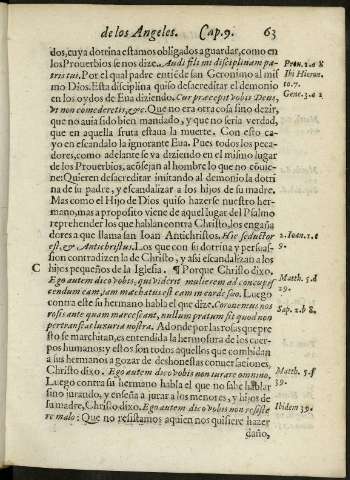 de los Angeles. Cap. 9. 63
dos, cuya dotrina estamos obligados a guardar, como en
los Prouerbios se nos dize. Audi fili mi disciplinam pa-
tris tui. Por el qual padre entiẽde san Geronimo al mis
mo Dios. Esta disciplina quiso desacreditar el demonio
en los oydos de Eua diziendo. Cur præcepit vobis Deus,
vt non comederetis, &c. Que no era otra cosa sino dezir,
que no auia sido bien mandado, y que no seria verdad,
que en aquella fruta estaua la muerte. Con esto ca-
yo en escandalo la ignorante Eua. Pues todos los peca-
dores, como adelante se va diziendo en el mismo lugar
de los Prouerbios, acõsejan al hombre lo que no cõuie-
ne: Quieren desacreditar imitando al demonio la dotri
na de su padre, y escandalizar a los hijos de su madre.
Mas como el Hijo de Dios quiso hazerse nuestro her-
mano, mas a proposito viene de aquel lugar del Psalmo
reprehender los que hablan contra Christo, los engaña
dores a que llama san Ioan Antichristos. Hic seductor
est, & Antichristus. Los que con su dotrina y persuas-
sion contradizen la de Christo, y assi escandalizan a los
C hijos pequeños de la Iglesia. ¶ Porque Christo dixo.
Ego autem dico vobis, qui viderit mulierem ad concupis
cendum eam, iam mœchatus est eam in corde suo. Luego
contra este su hermano habla el que dize. Coronemus nos
rosis ante quam marcescant, nullum pratum sit quod non
pertranseat luxuria nostra. Adonde por las rosas que pres
to se marchitan, es entendida la hermosura de los cuer-
pos humanos: y estos son todos aquellos que combidan
a sus hermanos a gozar de deshonestas conuersaciones.
Christo dixo. Ego autem dico vobis non iurare omnino.
Luego contra su hermano habla el que no sabe hablar
sino jurando, y enseña a jurar a los menores, y hijos de
su madre, Christo dixo. Ego autem dico vobis non resiste
re malo: Que no resistamos aquien nos quisiere hazer
daño,
Prou. 1. a 8
Ibi Hieron.
to. 7.
Gene. 3. a 2
2. Ioan. 1. c
9.
Matth. 5. d
29.
Sap. 2. b 8.
Matth. 5. f
39.
Ibidem 39.